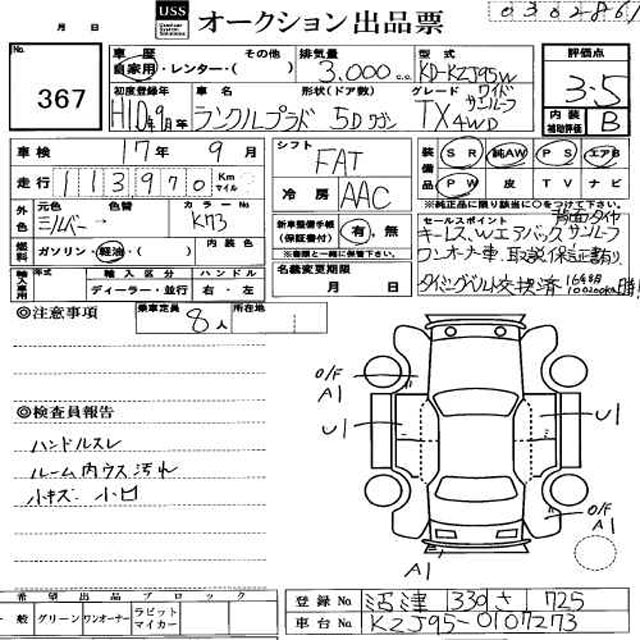 月 日
USS
オークション出品票
0302861
No.
367
車歴
自家用・レンター・( )
その他
排気量
3.000c.c.
型式
KD-KZJ95W
評価点
3.5
内装
補助評価
B
初度登録年
H10年9月
年
車名
ランクルプラド
形状(ドア数)
5Dワゴン
グレード
TX ワイド サンルーフ
4WD
車検
17年 9月
走行
113970
Km
マイル
外色
元色
シルバー→
色替
カラーNo
K73
燃料
ガソリン・軽油・( )
内装色
輸入車用
年式
輸入区分
ディーラー・並行
ハンドル
右・左
シフト
FAT
冷房
AAC
新車整備手帳
(保証書付)
有,無
※書類と一緒に保管下さい。
名義変更期限
月 日
装備品
SR 純AW PS エアB
PW 皮 TV ナビ
※純正品に限り該当に○をつけて下さい。
セールスポイント
背面タイヤ
キーレス、Wエアバッグ サンルーフ
ワンオーナー車、取説保証書有り、
タイミングベルト交換済
◎注意事項
乗車定員
8人
所在地
◎検査員報告
ハンドルスレ
ルーム内ウス汚れ
小キズ 小凹
O/F
A1
U1
U1
O/F
A1
A1
希望出品ブロック
一般
グリーン
ワンオーナー
ラビットマイカー
登録No.
沼津 330 さ 725
車台No.
KZJ95-0107273